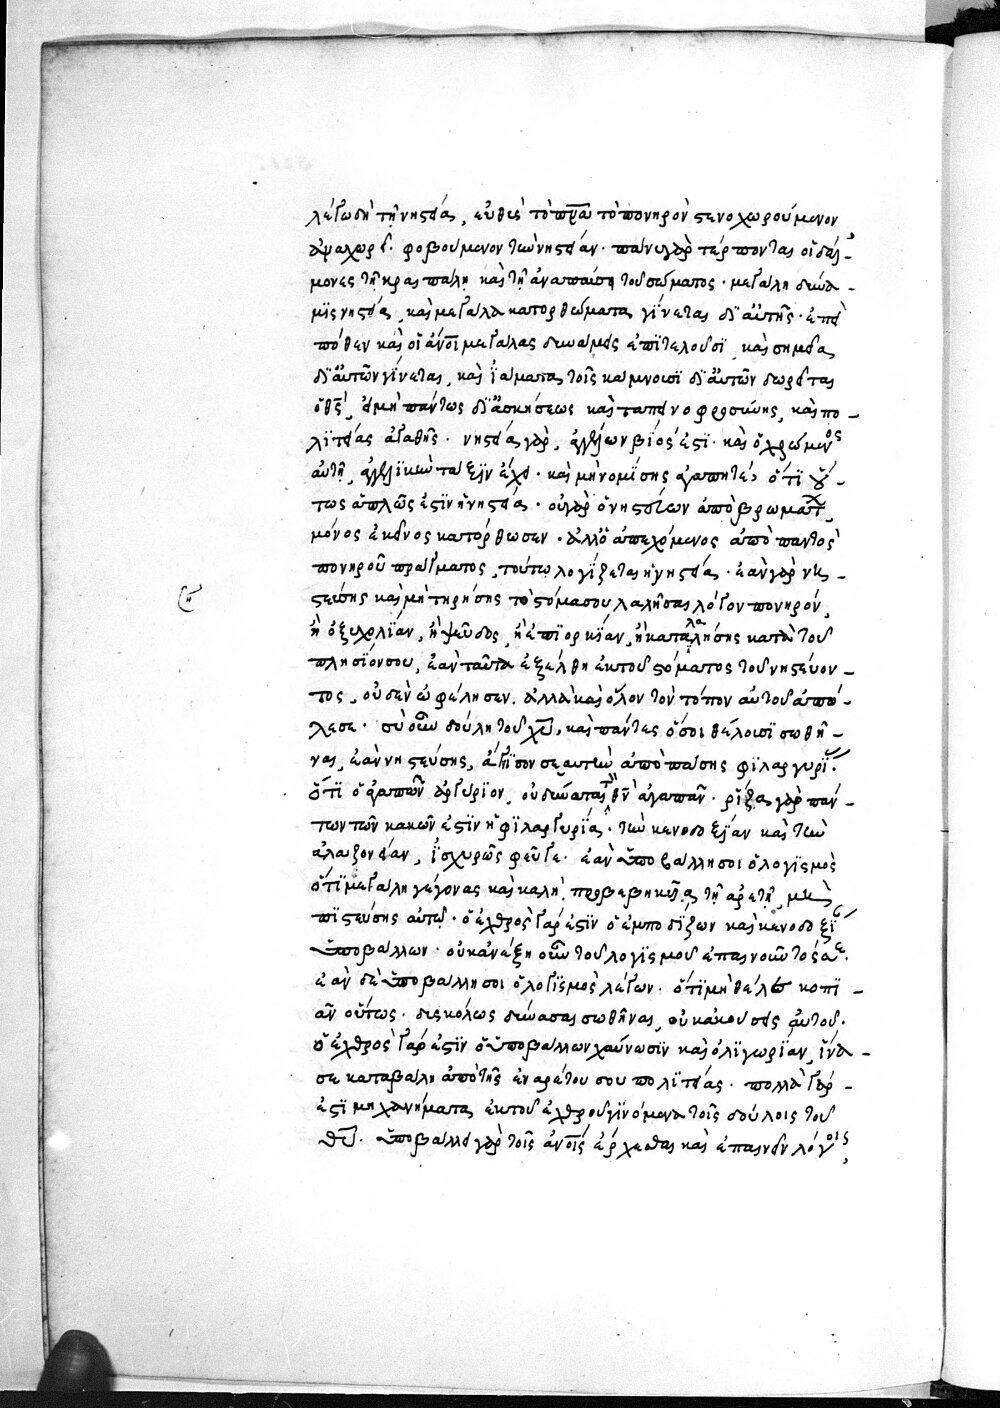 λέγω δὴ τῇ νηστεία, εὐθὺς τὸ πνα τὸ πονηρὸν στενοχωρούμενον
ἀναχωρεῖ· φοβούμενον τὴν νηστείαν· πάνυ γὰρ τέρπονται οἱ δαί-
μονες τῇ κραιπάλη καὶ τῇ ἀναπαύση τοῦ σώματος· μεγάλη δύνα-
μις νηστεία, καὶ μεγάλα κατορθώματα γίνεται δι' αὐτῆς· ἐπεὶ
πόθεν καὶ οἱ ἄνοι μεγάλας δυνάμεις ἐπιτελοῦσι, καὶ σημεῖα
δι' αὐτῶν γίνεται, καὶ ἰάματα τοῖς κάμνουσι δι' αὐτῶν δωρεῖται
ὁ θς, εἰ μὴ πάντως δι' ἀσκήσεως καὶ ταπεινοφροσύνης, καὶ πο-
λιτείας ἀγαθῆς· νηστεία γὰρ, ἀγγέλων βίος ἐστι· καὶ ὁ χρώμενος
αὐτῇ, ἀγγελικὴν τάξιν ἔχει· καὶ μὴ νομίσης ἀγαπητὲ ὅτι οὕ-
τως ἁπλῶς ἐστὶν ἡ νηστεία· οὐ γὰρ ὁ νηστεύων ἀπὸ βρωμάτ
μόνος ἐκεῖνος κατόρθωσεν· ἀλλ' ὁ ἀπεχόμενος ἀπὸ παντὸς
πονηροῦ πράγματος, τούτω λογίζεται ἡ νηστεία· ἐὰν γὰρ νη-
στεύσης καὶ μὴ τηρήσης τὸ στόμα σου λαλῆσαι λόγον πονηρόν,
ἢ ὀξυχολίαν, ἢ ψεῦδος, ἢ ἐπιορκίαν, ἢ καταλαλήσης κατὰ τοῦ
πλησίον σου, ἐὰν ταῦτα ἐξέλθη ἐκ τοῦ στόματος τοῦ νηστεύον-
τος, οὐδὲν ὠφέλησεν. ἀλλὰ καὶ ὅλον τὸν τόπον αὐτοῦ ἀπώ-
λεσε· σὺ οὖν δούλη τοῦ χυ, καὶ πάντες ὅσοι θέλουσι σωθῆ-
ναι, ἐὰν νηστεύσης, ἅγνισον σεαυτὴν ἀπὸ πάσης φιλαργυρί
ὅτι ὁ ἀγαπῶν ἀργύριον, οὐ δύναται τὸν θν ἀγαπᾶν· ῥίζα γὰρ πάν-
των τῶν κακῶν ἐστὶν ἡ φιλαργυρία· τὴν κενοδοξίαν καὶ τὴν
ἀλαζονείαν, ἰσχυρῶς φεῦγε· ἐὰν ὑποβάλλη σοι ὁ λογισμὸς
ὅτι μεγάλη γέγονας καὶ καλὴ, προβεβηκυῖα τῇ ἀρετῇ, μὴ
πιστεύσης αὐτῷ· ὁ ἐχθρὸς γάρ ἐστιν ὁ ἐμποδίζων καὶ κενοδοξί
ὑποβάλλων· οὐκ ἀνέξη οὖν τοῦ λογισμοῦ ἐπαινοῦντός σε.
ἐὰν δὲ ὑποβάλλη σοι ὁ λογισμὸς λέγων· ὅτι μὴ θέλε κοπι-
ᾶν οὕτως· δυσκόλως δύνασαι σωθῆναι, οὐκ ἀκούσεις αὐτοῦ·
ὁ ἐχθρὸς γάρ ἐστιν ὁ ὑποβάλλων χαύνωσιν καὶ ὀλιγωρίαν, ἵνα
σε καταβάλη ἀπὸ τῆς ἐναρέτου σου πολιτείας· πολλὰ γάρ
ἐστι μηχανήματα ἐκ τοῦ ἐχθροῦ γινόμενα τοῖς δούλοις τοῦ
θυ· ὑποβάλλει γὰρ τοῖς ἀνοις ἔρχεσθαι καὶ ἐπαινεῖν λόγοις,